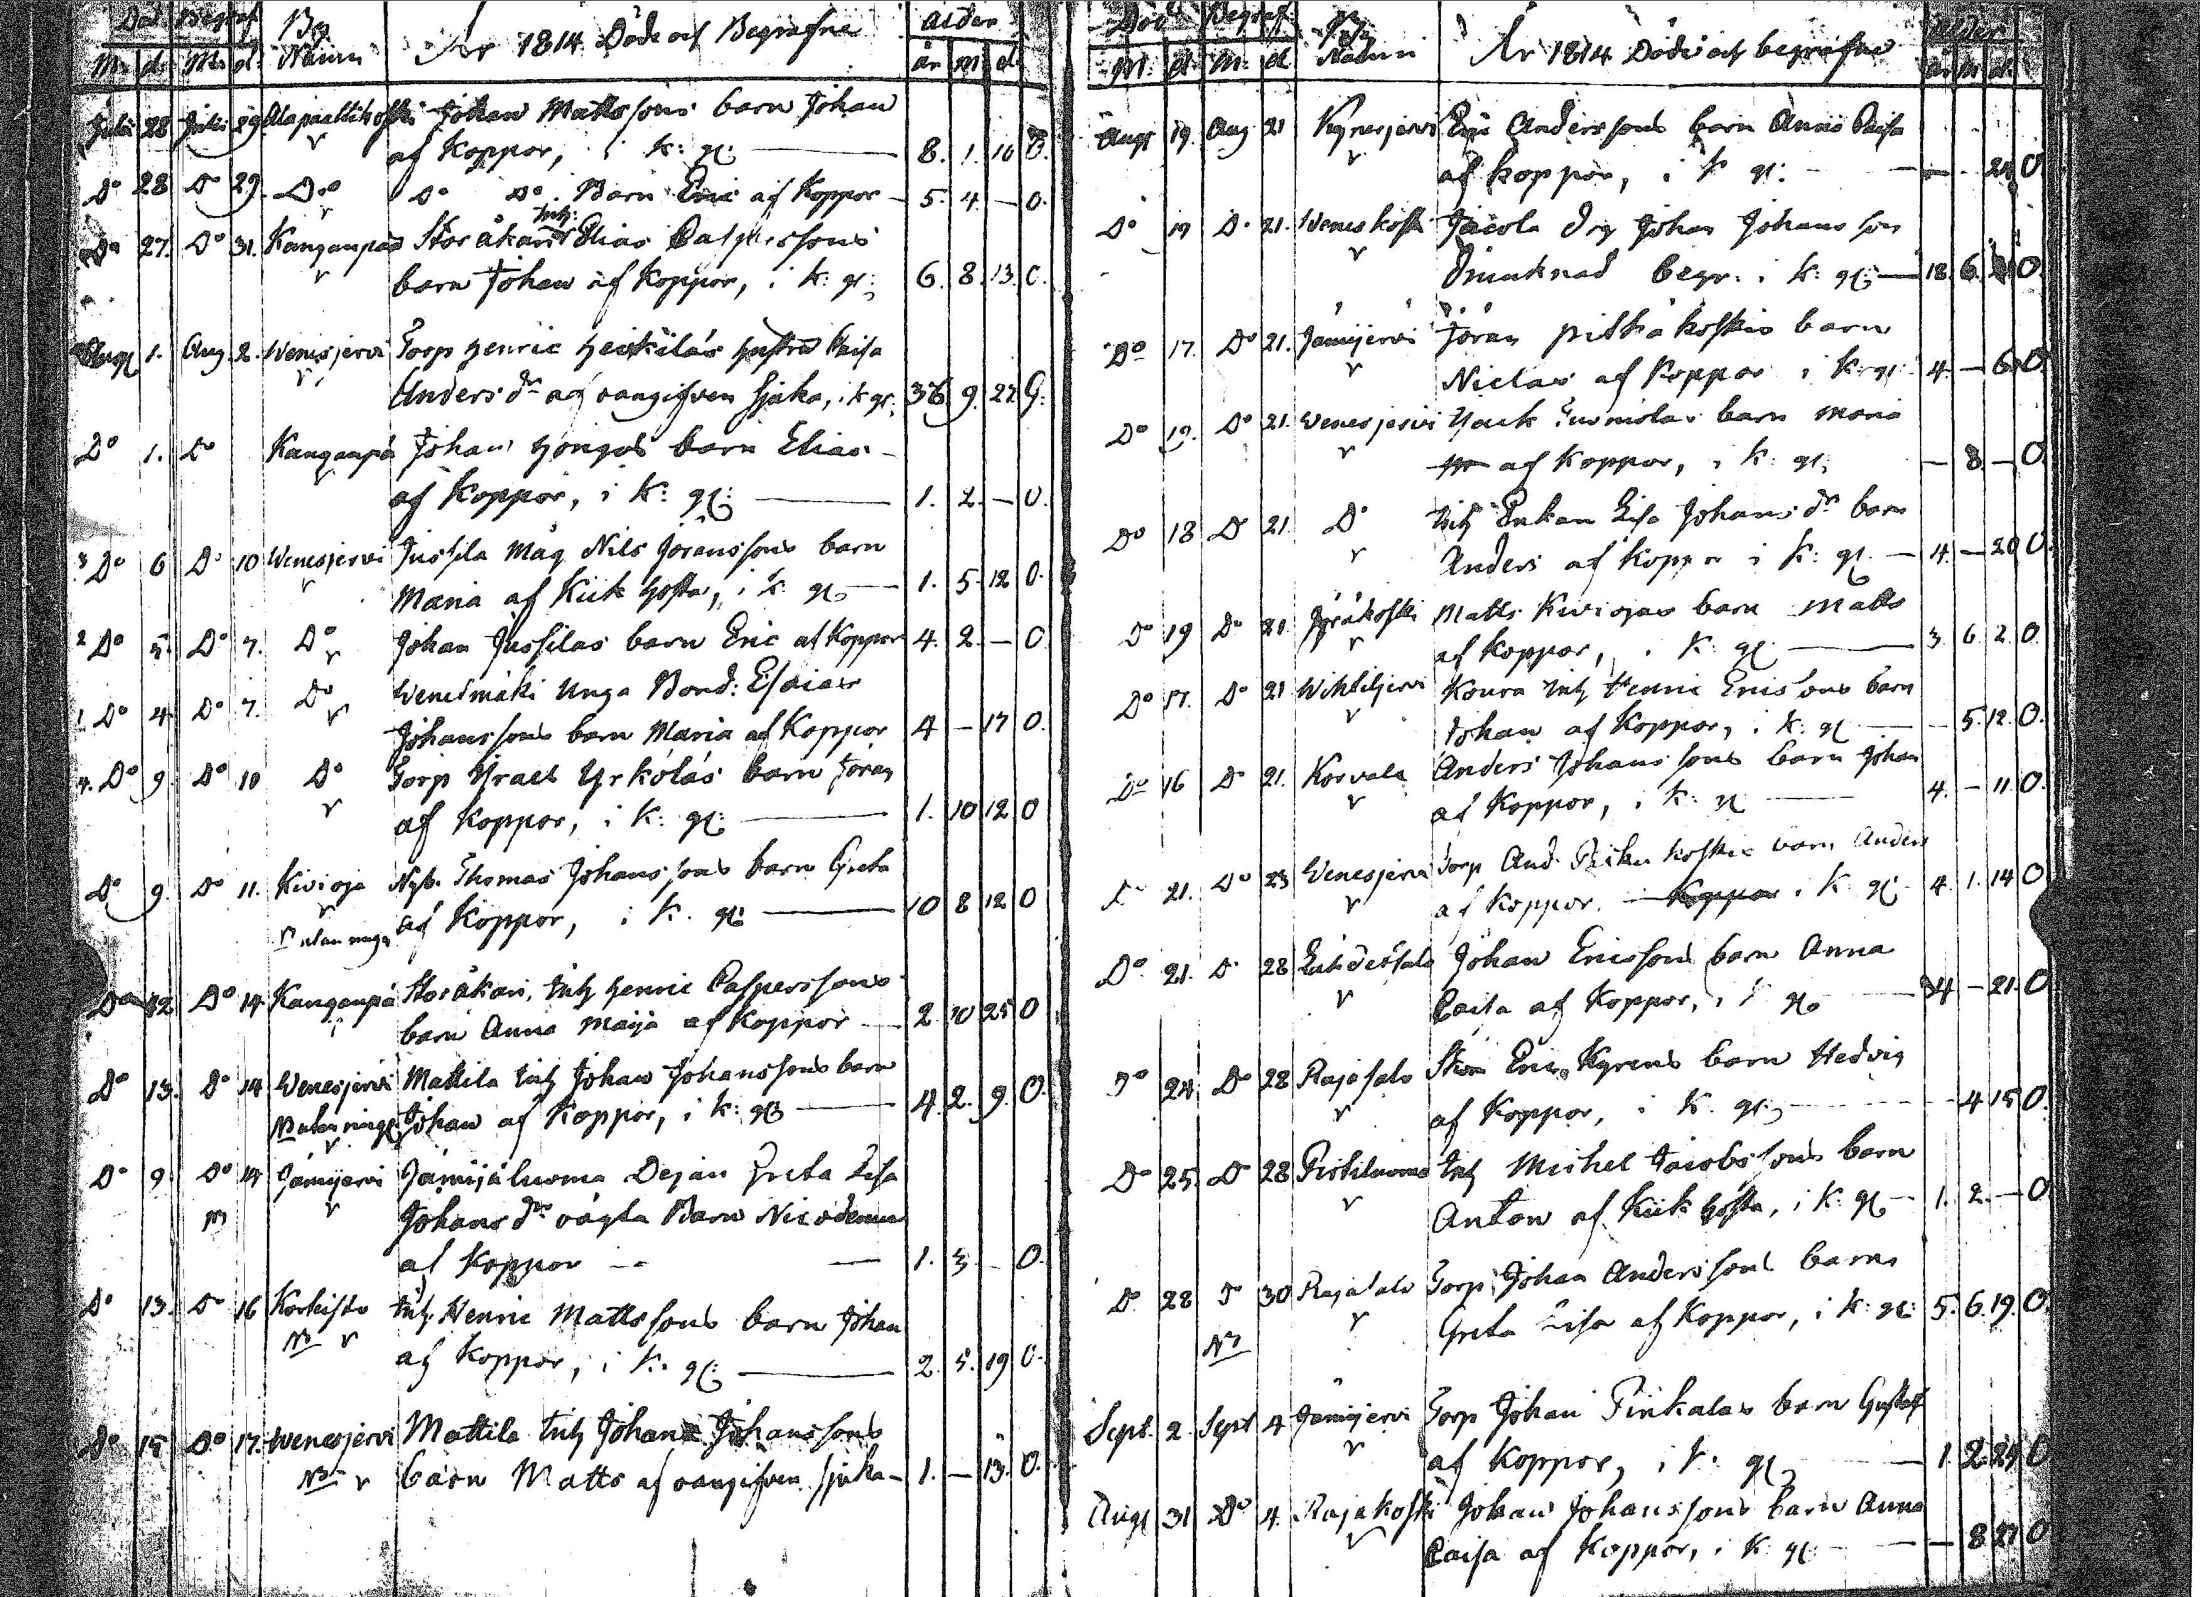 Död Begraf. By År 1814 Döde och Begrafne Ålder
M. d. M. d. Namn år m. d.
Julii 28 Julii 29 Alapaattikoski Johan Matts sons barn Johan
af Koppor, i k: g: 8. 1. 10 O.
Do 28 Do 29. Do Do Do Barn Eric af Koppor 5. 4. — O.
Do 27. Do 31. Kanganpää Storåkari Inh: Elias Caspers sons
barn Johan af Koppor, i k: g: 6. 8. 13. O.
Aug 1. Aug. 2. Wenesjervi Torp Henric Heikiläs hustru Caisa
Anders dr af oangifven sjuka, i k g: 36 9. 27 G.
Do 1. Do Kanganpä Johan barn Elias
af Koppor, i k: g: 1. 2. — O.
3 Do 6 Do 10 Wenesjervi Jussila Måg Nils Jöranssons barn
Maria af Kiik Hosta, i k g: 1. 5. 12 O.
2 Do 5 Do 7. Do Johan Jussilas barn Eric af Koppor 4. 2. — O
1. Do 4 Do 7. Do Wenesmäki Unga Bond: Esaias
Johanssons barn Maria af Koppor 4 — 17 O.
4. Do 9. Do 10 Do Torp Israel Yrköläs barn Jöran
af Koppor, i k: g: 1. 10 12 O
Do 9. Do 11. Kivioja Nyb. Thomas Johans sons barn Greta
af Koppor, i k. g: 10 8 12 O
Do 12 Do 14 Kanganpä Storåkari, Inh Henric Caspers sons
barn Anna Maija af Koppor 2. 10 25 O
Do 13. Do 14 Wenesjervi Mattila Inh Johan Johans sons barn
Johan af Koppor, i k: g: 4. 2. 9. O.
Do 9. Do 14 Jämijervi Jämijäluoma Dejan Greta Lisa
Johans dr oägta Barn Nicodemus
af Koppor 1. 3 — O.
Do 13. Do 16 Korhisto Inh. Henric Matts sons barn Johan
af Koppor, i k. g: 2. 5. 19 O.
Do 15 Do 17. Wenesjervi Mattila Inh Johan Johans sons
barn Matts af oangifven sjuka 1. — 13. O.
Död Begraf. By År 1814 Döde och begrafne Ålder
M. d. M. d Namn år m d.
Aug 19. Aug 21 Kyresjervi Eric Anders sons barn Anna Caisa
af Koppor, i k g: — — 24 O.
Do 19 Do 21. Weneskoski Jacola Drg Johan Johans son
Drunknad Begr. i k: g: 18. 6. O.
Do 17. Do 21. Jämijervi Jöran Pitkäkoskis barn
Niclas af Koppor i k: g: 4 — 6 O.
Do 19. Do 21. Wenesjervi barn Maria
af Koppor, i k: g: — 8 — O.
Do 18 Do 21. Do Inh Enkan Lisa Johans dr barn
Anders af Koppor i k: g. 4. — 20 O.
Do 19 Do 21. Jyräkoski Matts Kiviojas barn Matts
af Koppor, i k g: 3. 6 2. O.
Do 17. Do 21 Wihtiljervi Koura Inh Henric Erics sons barn
Johan af Koppor, i k: g — 5. 12. O.
Do 16 Do 21. Korvala Anders Johans sons barn Johan
af Koppor, i k: g 4. — 11. O.
Do 21. Do 23 Wenesjervi Torp And. barn Anders
af Koppor. Koppor i k g: 4. 1. 14 O
Do 21. Do 28 Johan Erics sons barn Anna
Caisa af Koppor, i k g: 4 — 21. O
Do 24 Do 28 Rajasalo Eric Kyrens barn Hedvig
af Koppor, i k. g: 4 15 O.
Do 25. Do 28 Pistiluoma Inh Michel Jacobs sons barn
Anton af Kiik Hosta, i k: g: 1. 2. — O
Do 28 Do 30 Rajasalo Torp Johan Anders sons barn
Greta Lisa af Koppor, i k: g: 5. 6. 19. O.
Sept. 2. Sept 4 Jämijervi Torp Johan Pinkalas barn Gustaf
af Koppor, i k. g: 1. 2. 24 O
Aug 31 Do 4. Rajakoski Johan Johans sons barn Anna
Caisa af Koppor, i k g: — 8 21 O